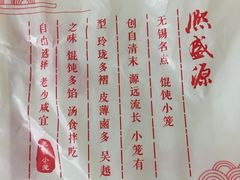 熙盛源
无锡名点 馄饨小笼
创自清末 源远流长 小笼有
型 玲珑多褶 皮薄卤多 吴越
之味 馄饨多馅 汤食拌吃
自由选择 老少咸宜
小笼